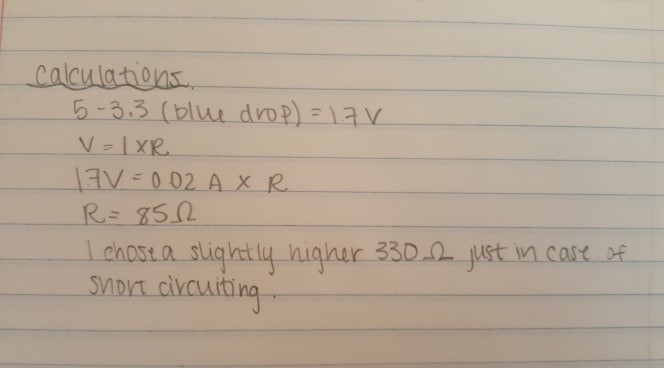 calculations.
5-3.3 (blue drop) = 1.7V
V = I x R
1.7V = 0.02 A x R
R = 85Ω
I chose a slightly higher 330Ω just in case of
short circuiting.